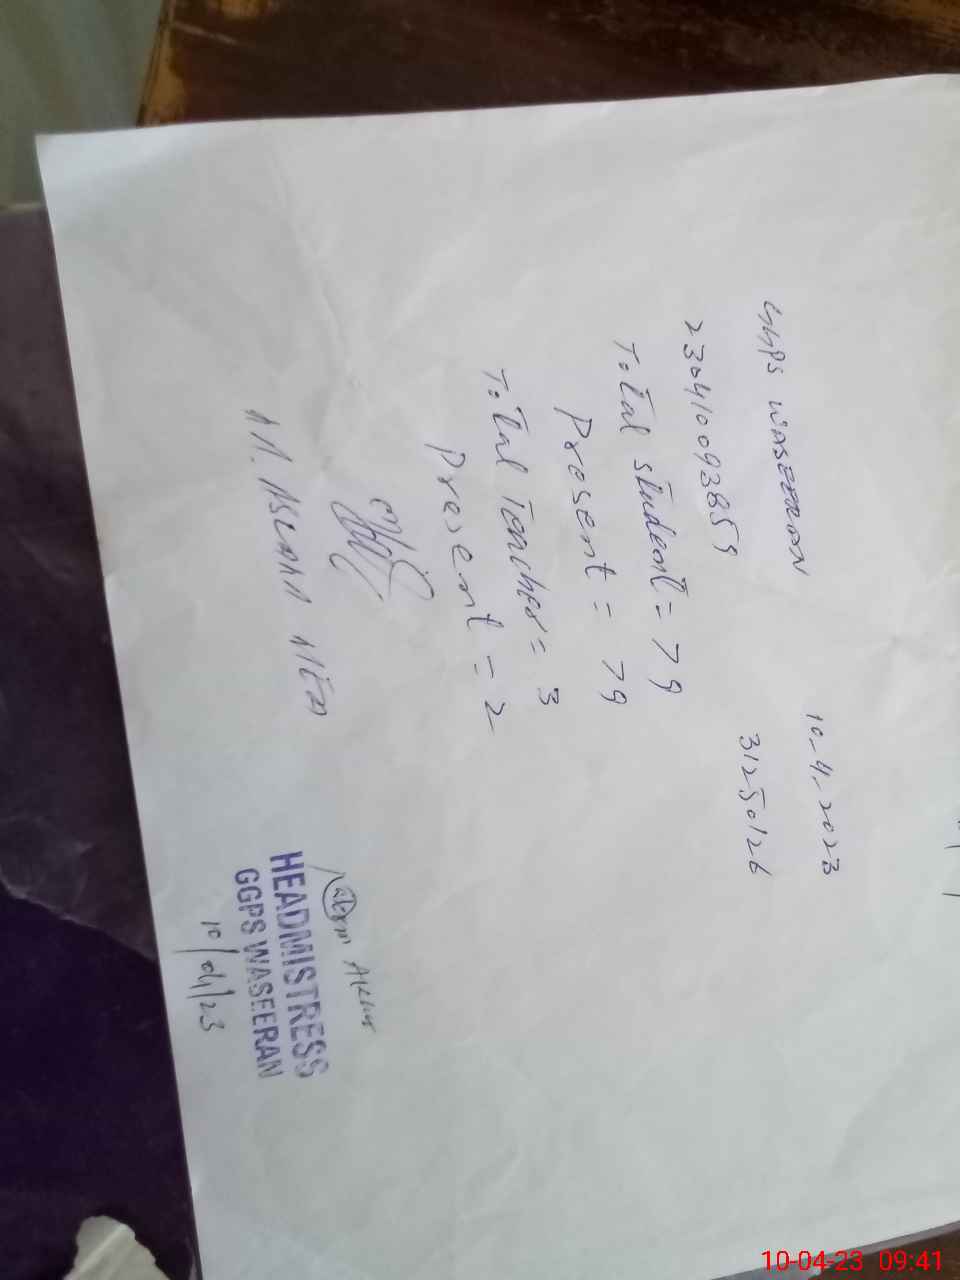 GGPS WASEERAN
10-4-2023
23041009385S
31250126
Total student = 79
Present = 79
Total Teacher = 3
Present = 2
M. ASLAM MEA
Akhtar
HEADMISTRESS
GGPS WASEERAN
10/04/23
10-04-23 09:41